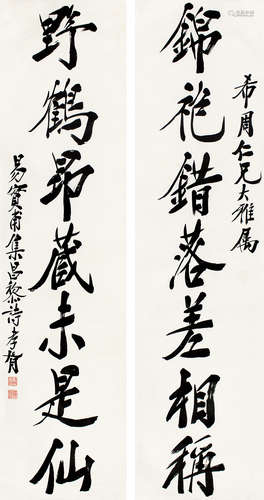 希周仁兄大雅属
錦袍錯落差相稱
野鶴昂藏未是仙
易實甫集昌黎詩孝胥